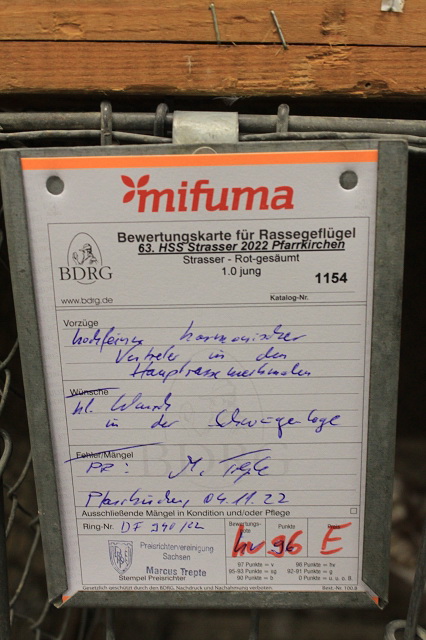 mifuma
Bewertungskarte für Rassegeflügel
63. HSS Strasser 2022 Pfarrkirchen
Strasser - Rot-gesäumt
1.0 jung
BDRG
1154
www.bdrg.de
Katalog-Nr.
Vorzüge
hochfeiner harmonischer
Vertreter in den
Hauptrassemerkmalen
Wünsche
kl. Wunsch
in der Schwingenlage
Fehler/Mängel
PR: M. Trepte
Pfarrkirchen 04.11.22
Ausschließende Mängel in Kondition und/oder Pflege
Ring-Nr.
Bewertungs-
note
Punkte
Preis
hv 96 E
Preisrichtervereinigung
Sachsen
Marcus Trepte
Stempel Preisrichter
97 Punkte = v
96 Punkte = hv
93-95 Punkte = sg
92-91 Punkte = g
90 Punkte = b
0 Punkte = u, o, B
Gesetzlich geschützt durch den BDRG, Nachdruck und Nachahmung verboten.